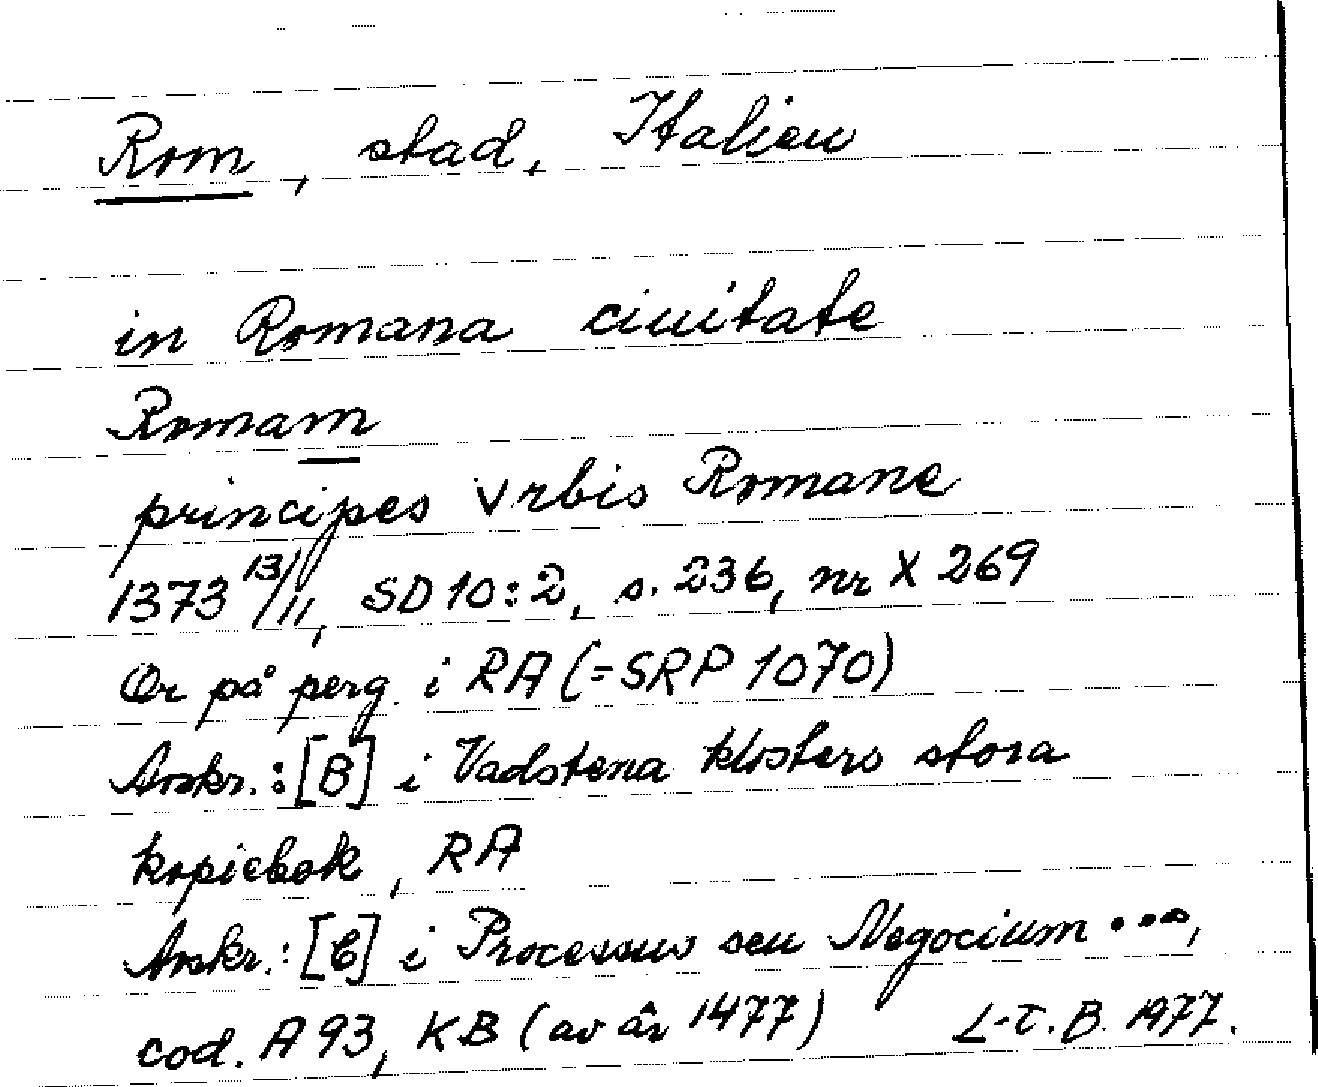 Rom, stad, Italien
in Romana ciuitate
Romam
principes vrbis Romane
1373 13/11, SD 10:2, s. 236, nr X 269
Or på perg. i RA (=SRP 1070)
Avskr.: [B] i Vadstena klosters stora
kopiebok, RA
Avskr.: [C] i Processus seu Negocium ...,
cod. A 93, KB (av år 1477) L-T.B. 1977.